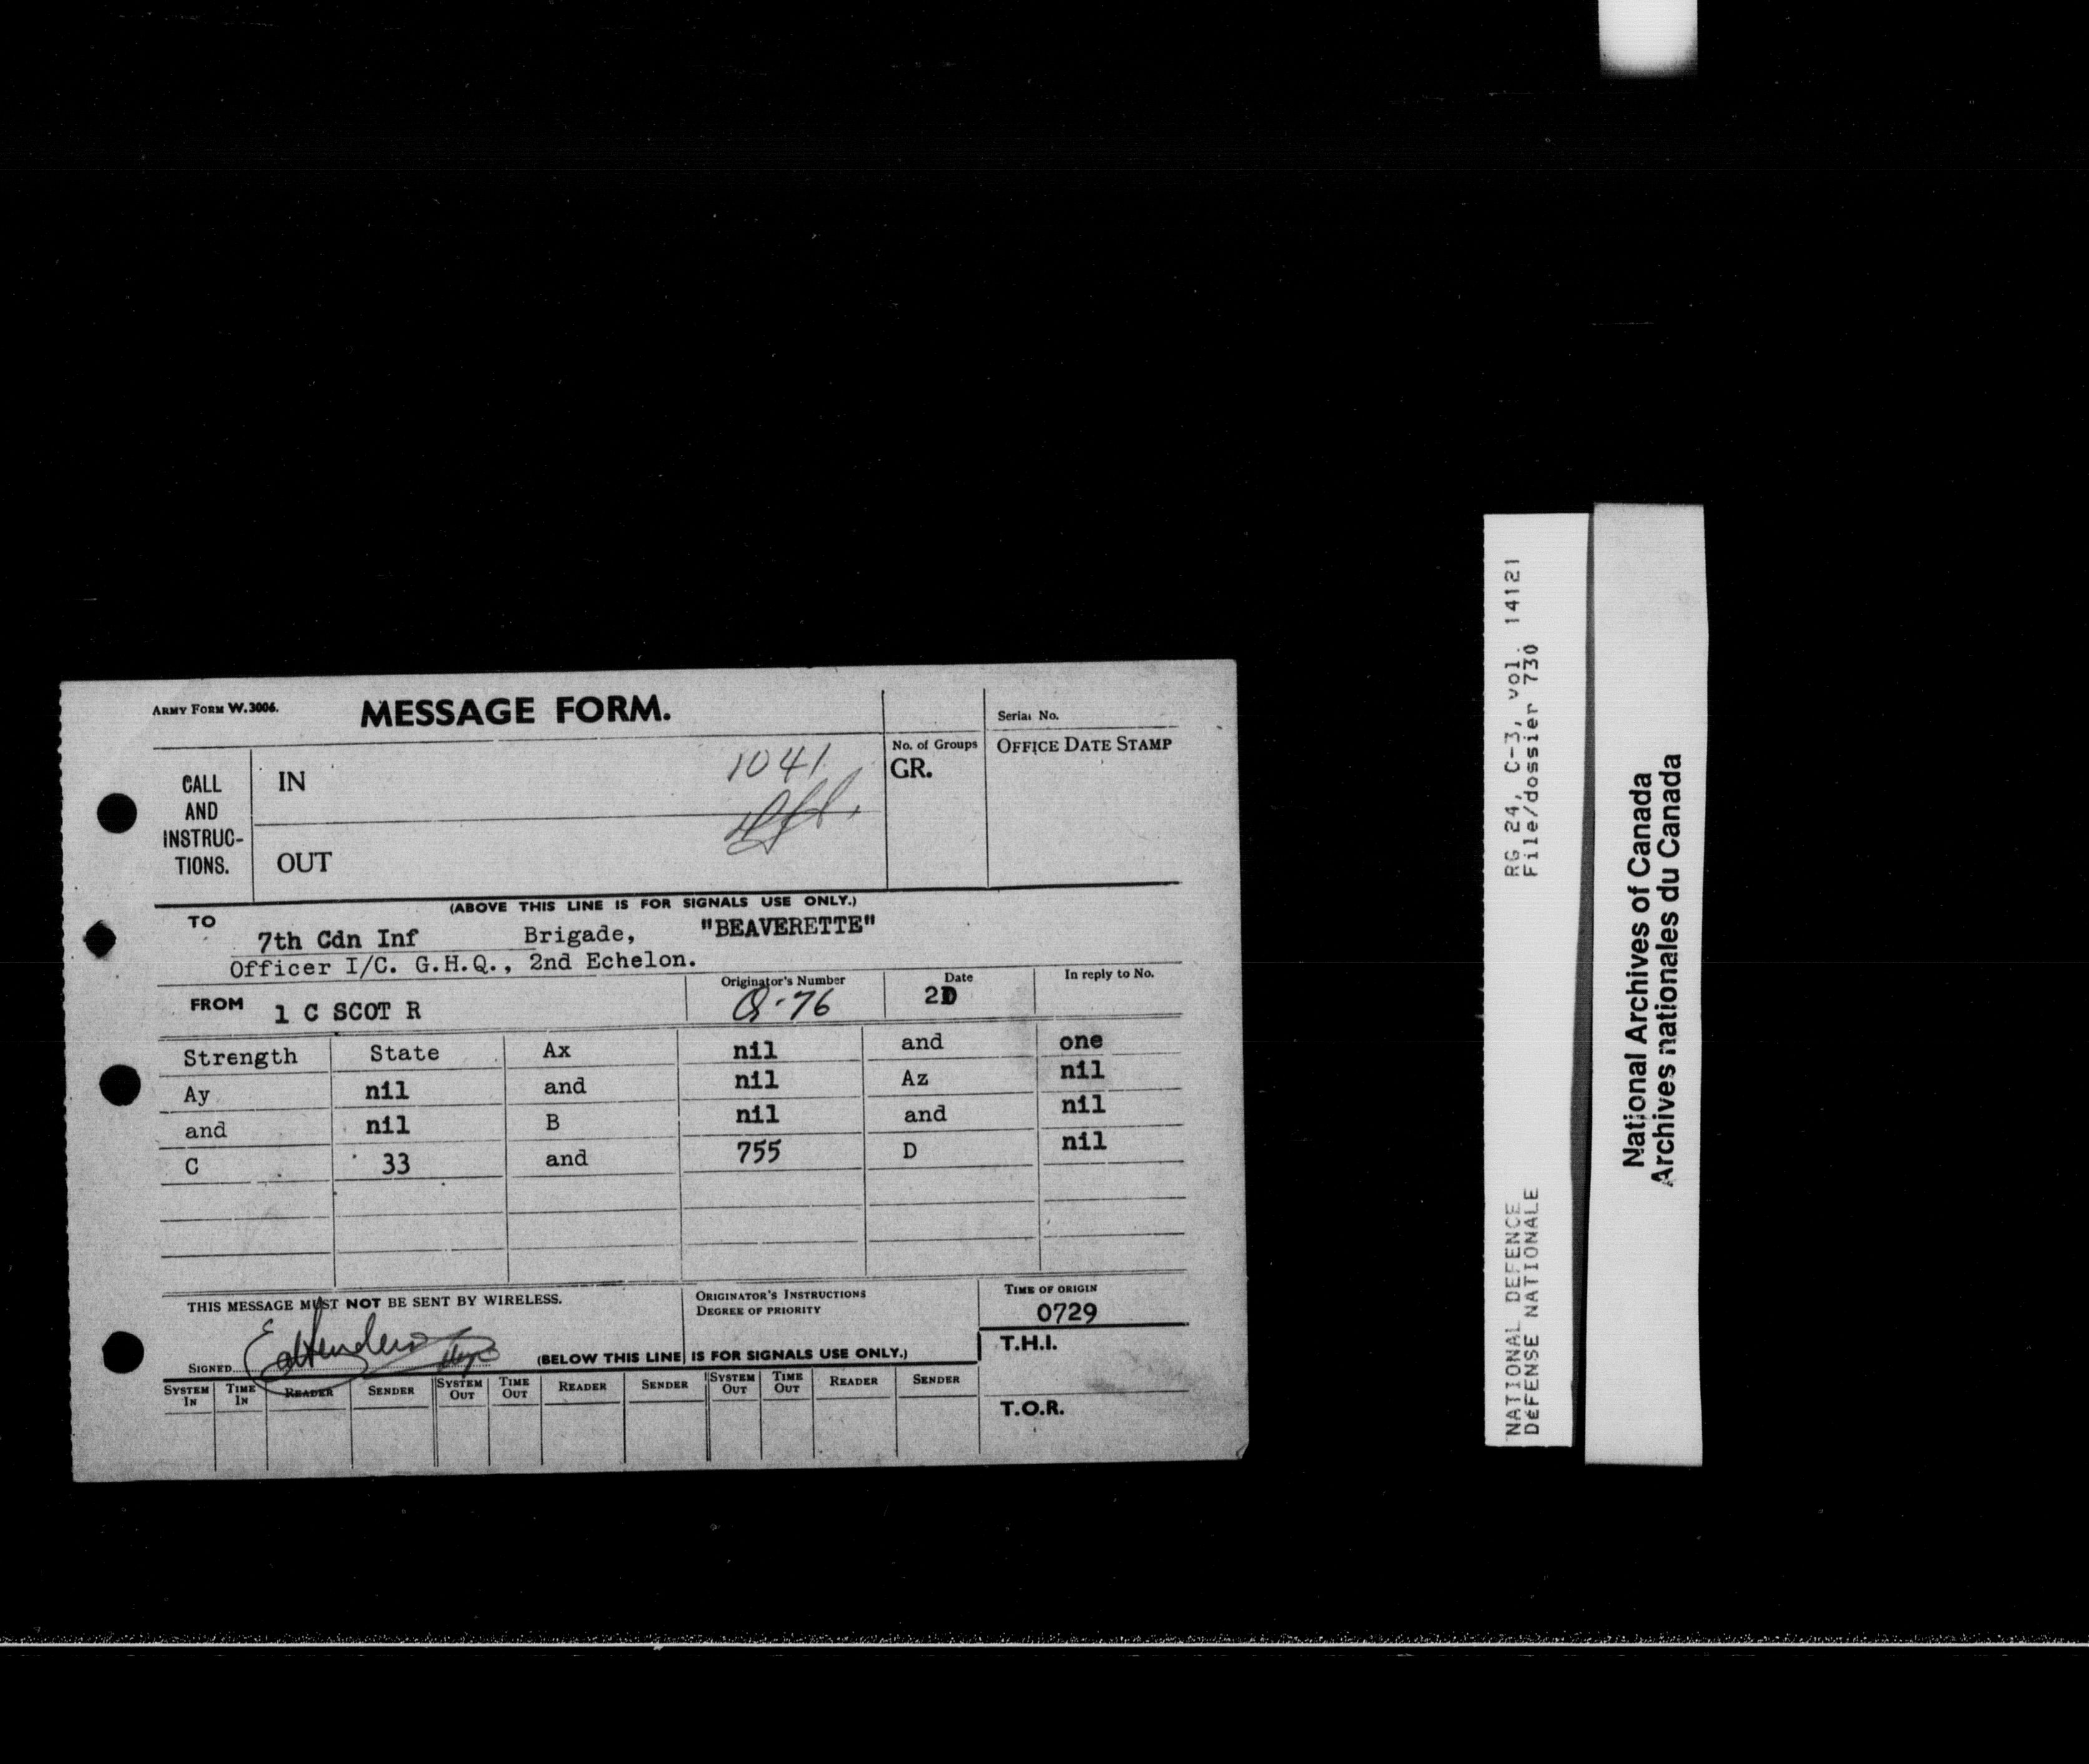 ARMY FORM W.3006.
MESSAGE FORM.
Serial No.
CALL
AND
INSTRUC-
TIONS.
IN
1041
No. of Groups
GR.
OFFICE DATE STAMP
OUT
(ABOVE THIS LINE IS FOR SIGNALS USE ONLY.)
TO
7th Cdn Inf Brigade, "BEAVERETTE"
Officer I/C. G.H.Q., 2nd Echelon.
FROM 1 C SCOT R
Originator's Number
Q-76
Date
In reply to No.
Strength State Ax nil and one
Ay nil and nil Az nil
and nil B nil and nil
C 33 and 755 D nil
THIS MESSAGE MUST NOT BE SENT BY WIRELESS.
ORIGINATOR'S INSTRUCTIONS
DEGREE OF PRIORITY
TIME OF ORIGIN
0729
SIGNED
(BELOW THIS LINE IS FOR SIGNALS USE ONLY.)
T.H.I.
SYSTEM IN TIME IN READER SENDER SYSTEM OUT TIME OUT READER SENDER SYSTEM OUT TIME OUT READER SENDER
T.O.R.
RG 24, C-3, vol. 14121
File/dossier 730
NATIONAL DEFENCE
DéFENSE NATIONALE
National Archives of Canada
Archives nationales du Canada